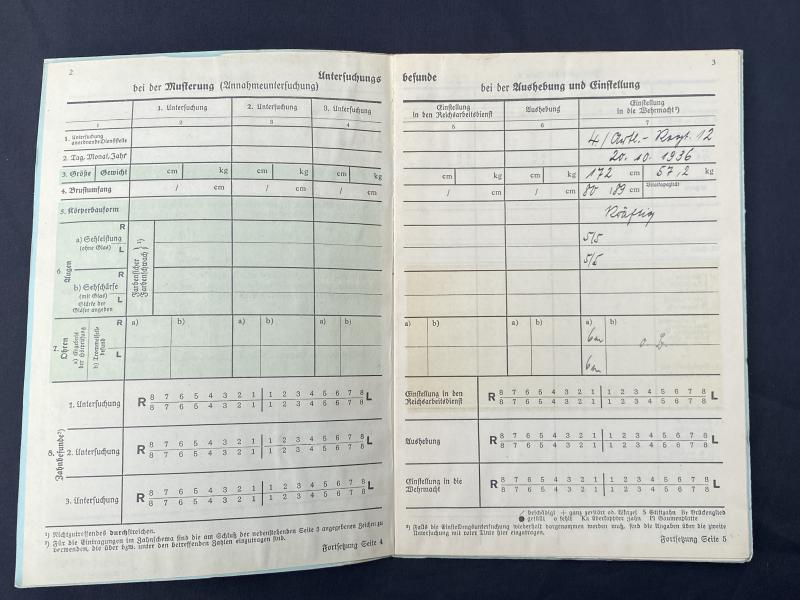 2
Untersuchungs
bei der Musterung (Annahmeuntersuchung)
1. Untersuchung 2. Untersuchung 3. Untersuchung
1 2 3 4
1. Untersuchung
anordnende Dienststelle
2. Tag, Monat, Jahr
3. Größe Gewicht cm kg cm kg cm kg
4. Brustumfang / cm / cm / cm
5. Körperbauform
6. Augen
a) Sehleistung R
(ohne Glas) L
b) Sehschärfe R
(mit Glas) L
Stärke der
Gläser angeben
Farbensicher
Farbenschwach ¹)
7. Ohren
a) Ergebnis
der Hörprüfung
b) Trommelfell-
befund
R
L
a) b) a) b) a) b)
8. Zahnbefunde²)
1. Untersuchung R 8 7 6 5 4 3 2 1 1 2 3 4 5 6 7 8 L
8 7 6 5 4 3 2 1 1 2 3 4 5 6 7 8
2. Untersuchung R 8 7 6 5 4 3 2 1 1 2 3 4 5 6 7 8 L
8 7 6 5 4 3 2 1 1 2 3 4 5 6 7 8
3. Untersuchung R 8 7 6 5 4 3 2 1 1 2 3 4 5 6 7 8 L
8 7 6 5 4 3 2 1 1 2 3 4 5 6 7 8
¹) Nichtzutreffendes durchstreichen.
²) Für die Eintragungen im Zahnschema sind die am Schluß der nebenstehenden Seite 3 angegebenen Zeichen zu
verwenden, die über bzw. unter den betreffenden Zahlen einzutragen sind.
Fortsetzung Seite 4
3
befunde
bei der Aushebung und Einstellung
Einstellung
in den Reichsarbeitsdienst
Aushebung
Einstellung
in die Wehrmacht³)
5 6 7
4/Artl.-Regt. 12
20.10.1936
cm kg cm kg 172 cm 57,2 kg
/ cm / cm 80 / 89 cm Vitalkapazität
Kräftig
5/5
5/5
a) b) a) b) a) b)
6 m o. B.
6 m
Einstellung in den
Reichsarbeitsdienst R 8 7 6 5 4 3 2 1 1 2 3 4 5 6 7 8 L
8 7 6 5 4 3 2 1 1 2 3 4 5 6 7 8
Aushebung R 8 7 6 5 4 3 2 1 1 2 3 4 5 6 7 8 L
8 7 6 5 4 3 2 1 1 2 3 4 5 6 7 8
Einstellung in die
Wehrmacht R 8 7 6 5 4 3 2 1 1 2 3 4 5 6 7 8 L
8 7 6 5 4 3 2 1 1 2 3 4 5 6 7 8
/ beschädigt + ganz zerstört od. Wurzel S Stiftzahn Br Brückenglied
● gefüllt o fehlt Ka überkappter Zahn Pl Gaumenplatte
³) Falls die Einstellungsuntersuchung wiederholt vorgenommen werden muß, sind die Angaben über die zweite
Untersuchung mit roter Tinte hier einzutragen.
Fortsetzung Seite 5